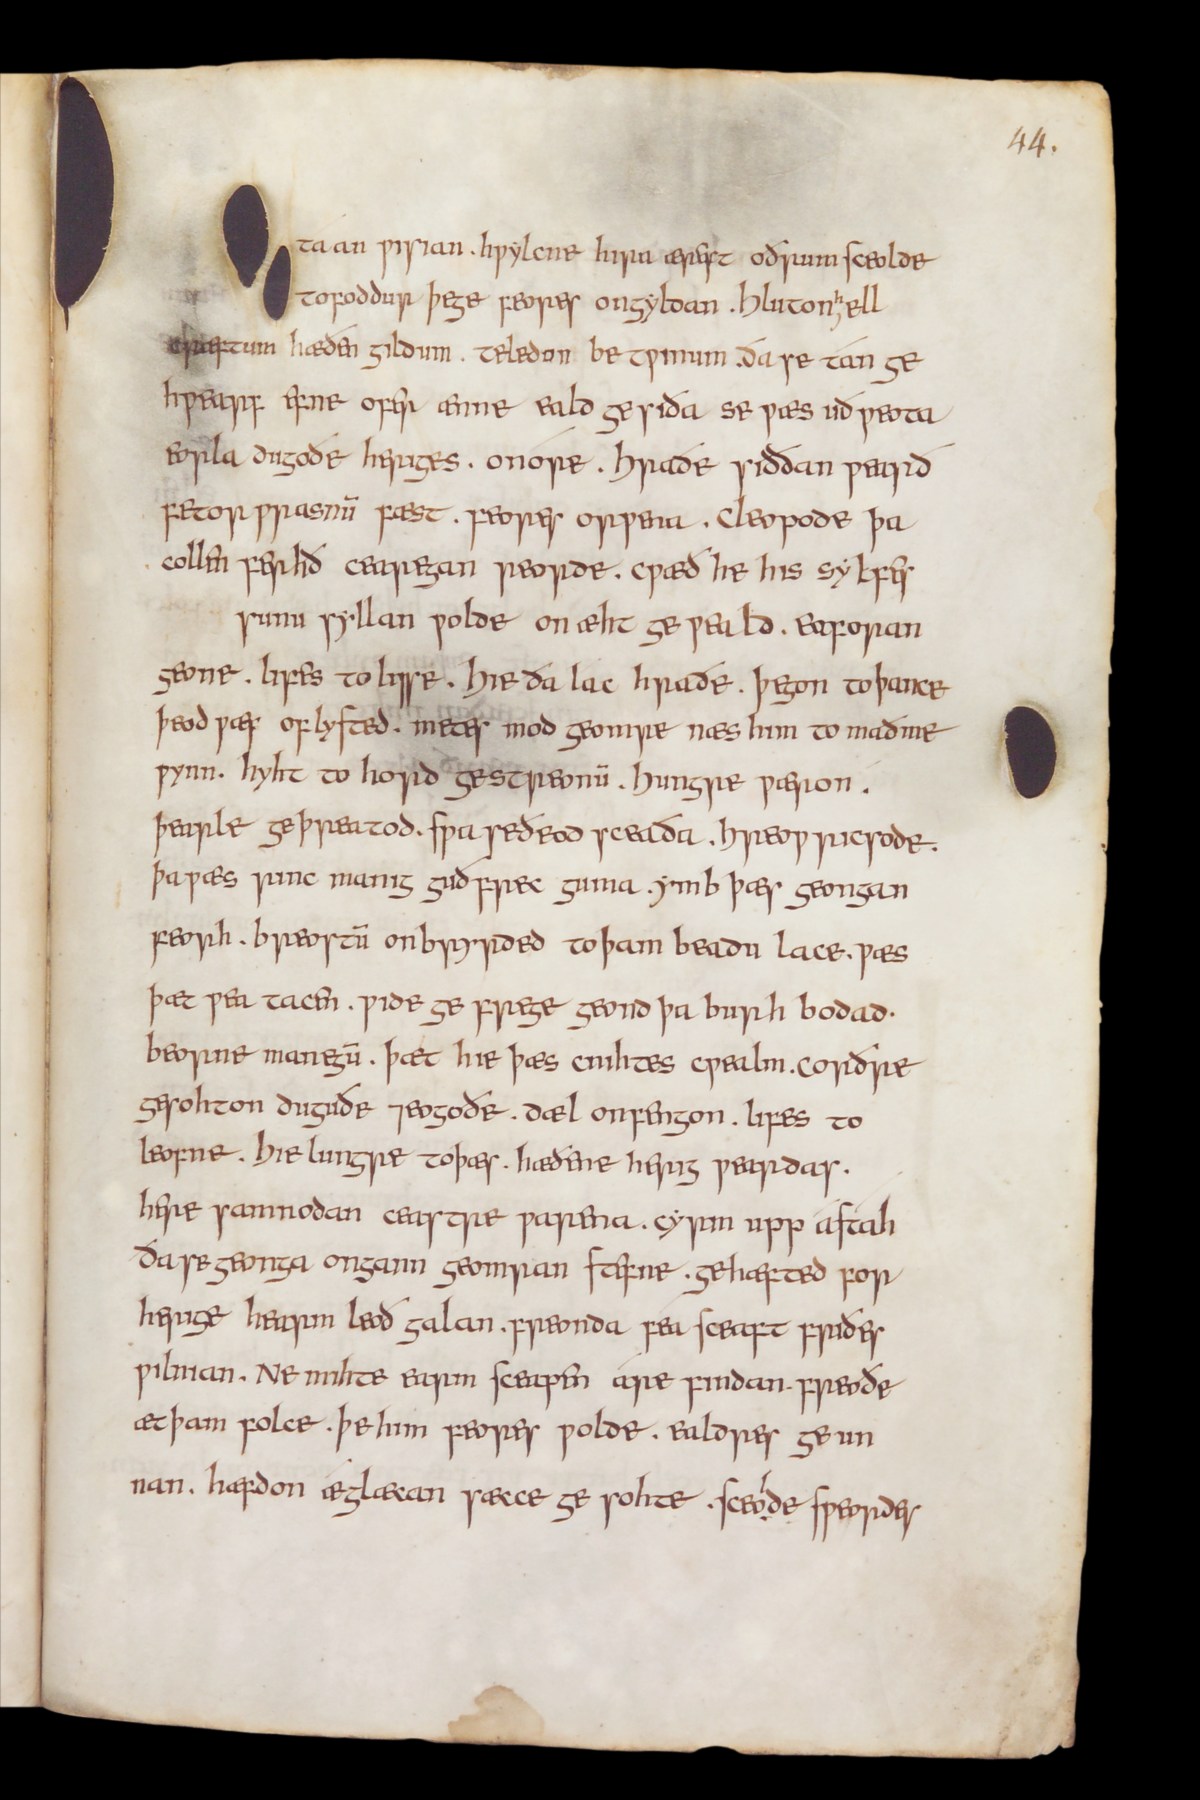 44.
taan ƿisian . hƿylcne hira ærest oðrum sceolde
to foddur þege feores ongyldan . Hluton hell
cræftum hæðen gildum . teledon be tƿinum . ða se tán ge
hƿearf efne ofer ænne eald ge siða se ƿæs uð ƿeota
eorla dugoðe heriges . on óre . Hraðe siððan ƿearð
fetor ƿrasnū fæst . feores orƿena . Cleopode þa
collen ferhð cearegan reorde . cƿæð he his sylfes
sunu syllan ƿolde on æht ge ƿeald . eaforan
geone . lifes to lisse . Hie ða lac hraðe . þegon to þance
þeod ƿæs oflysted . metes mod geomre næs him to maðme
ƿynn . hyht to hord gestreonū . Hungre ƿæron .
þearle geþreatod . sƿa se ðeod sceaða . hreoƿ ricsode .
þa ƿæs rinc manig guð frec guma . ymb þæs geongan
feorh . breostū onbryrded to þam beadu lace . ƿæs
þæt ƿea tacen . ƿide ge frege geond þa burh bodad .
beorne manegū . þæt hie þæs cnihtes cƿealm . corðre
gesohton duguðe ⁊eogoðe . dæl onfengon . lifes to
leofne . Hie lungre to þæs . hæðene herig ƿeardas .
here samnodan ceastre ƿarena . cyrm upp ástáh
ða se geonga ongann geomran stefne . gehæfted for
herige hearm leoð galan . freonda féa sceaft friðes
ƿilnian . Ne mihte earm sceapen áre findan . freoðe
æt þam folce . þe him feores ƿolde . ealdres ge un
nan . hæfdon æglæcan sæcce ge sohte . sceolde sƿeordes